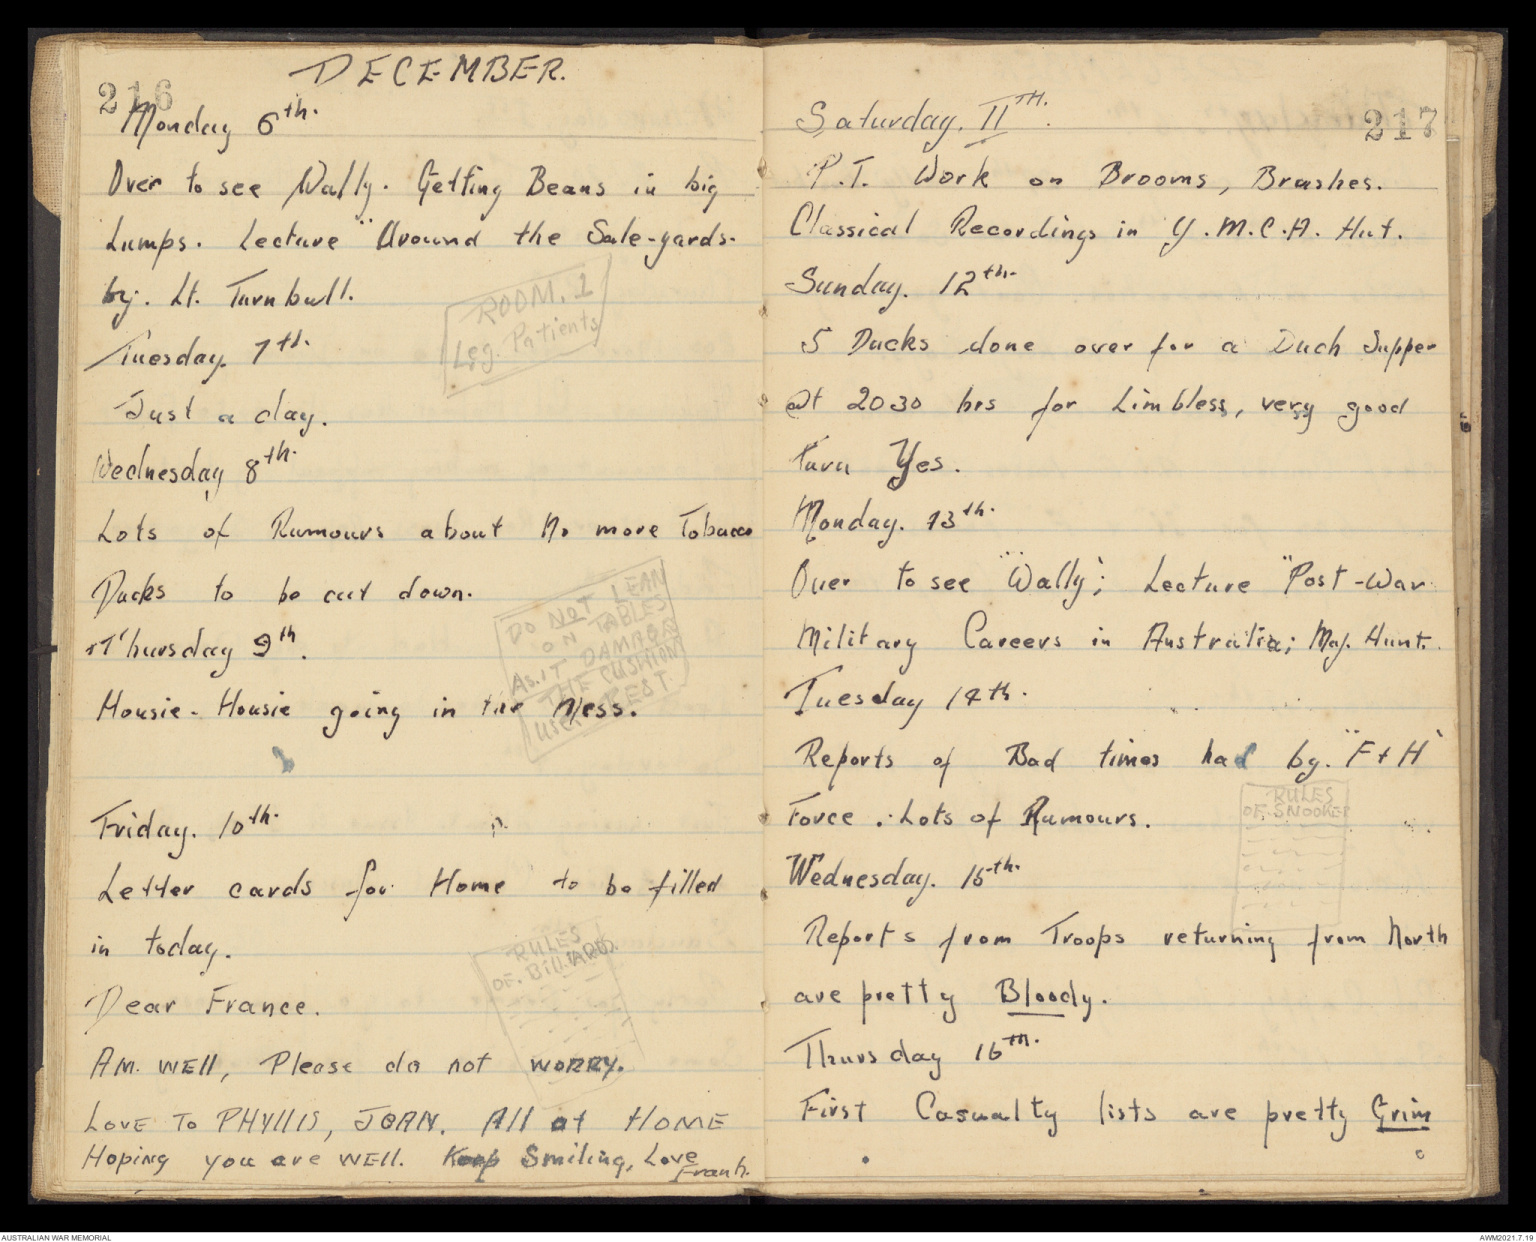 216
DECEMBER.
Monday 6th.
Over to see Wally. Getting Beans in big
Lumps. Lecture "Around the Sale-yards.
by. Lt. Turnbull.
ROOM. 1
Leg. Patients
Tuesday. 7th.
Just a day.
Wednesday 8th.
Lots of Rumours about No more Tobacco
Ducks to be cut down.
DO NOT LEAN
ON TABLES
As.IT DAMAGES
THE CUSHION
USE REST
Thursday 9th.
Housie - Housie going in the Mess.
Friday. 10th.
Letter cards for Home to be filled
in today.
RULES
OF. BILLIARDS.
Dear France.
AM. WEll, Please do not WORRY.
LOVE TO PHYllIS, JOAN. All at HOME
Hoping you are WEll. Keep Smiling, Love
Frank.
217
Saturday. 11TH.
P.T. Work on Brooms, Brushes.
Classical Recordings in Y.M.C.A. Hut.
Sunday. 12th.
5 Ducks done over for a Duch Supper
at 2030 hrs for Limbless, very good
turn Yes.
Monday. 13th.
Over to see "Wally"; Lecture "Post-War
Military Careers in Australia; Maj. Hunt.
Tuesday 14th.
Reports of Bad times had by. "F + H"
Force. Lots of Rumours.
RULES
OF. SNOOKER
Wednesday. 15th.
Reports from Troops returning from North
are pretty Bloody.
Thursday 16th.
First Casualty lists are pretty Grim
AUSTRALIAN WAR MEMORIAL
AWM2021.7.19